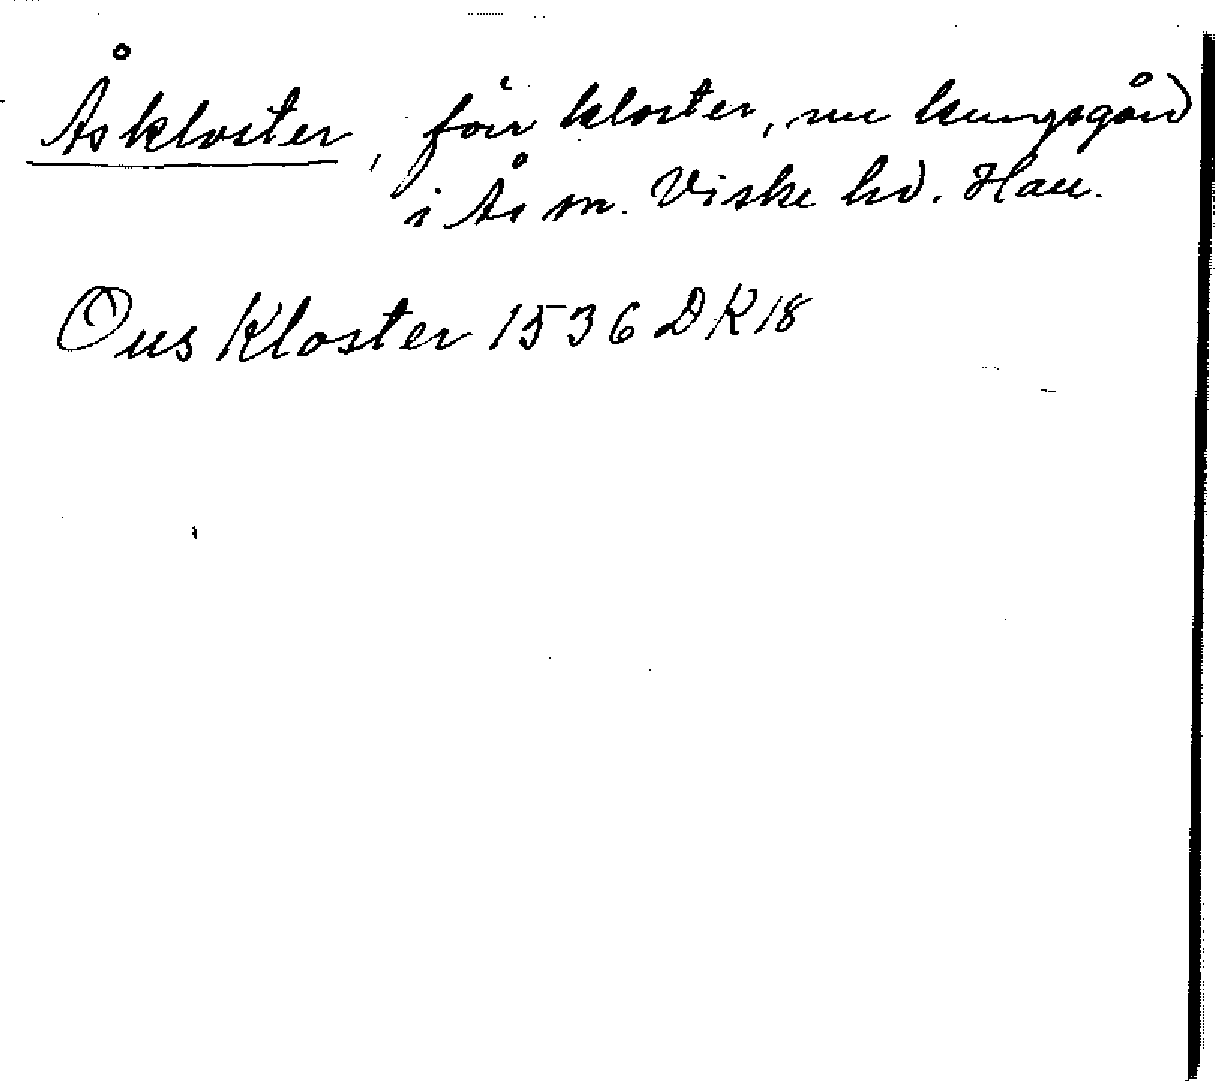 Åskloster, förr kloster, nu kungsgård
i Ås sn. Viske hd. Hall.
Ous Kloster 1536 DK 18